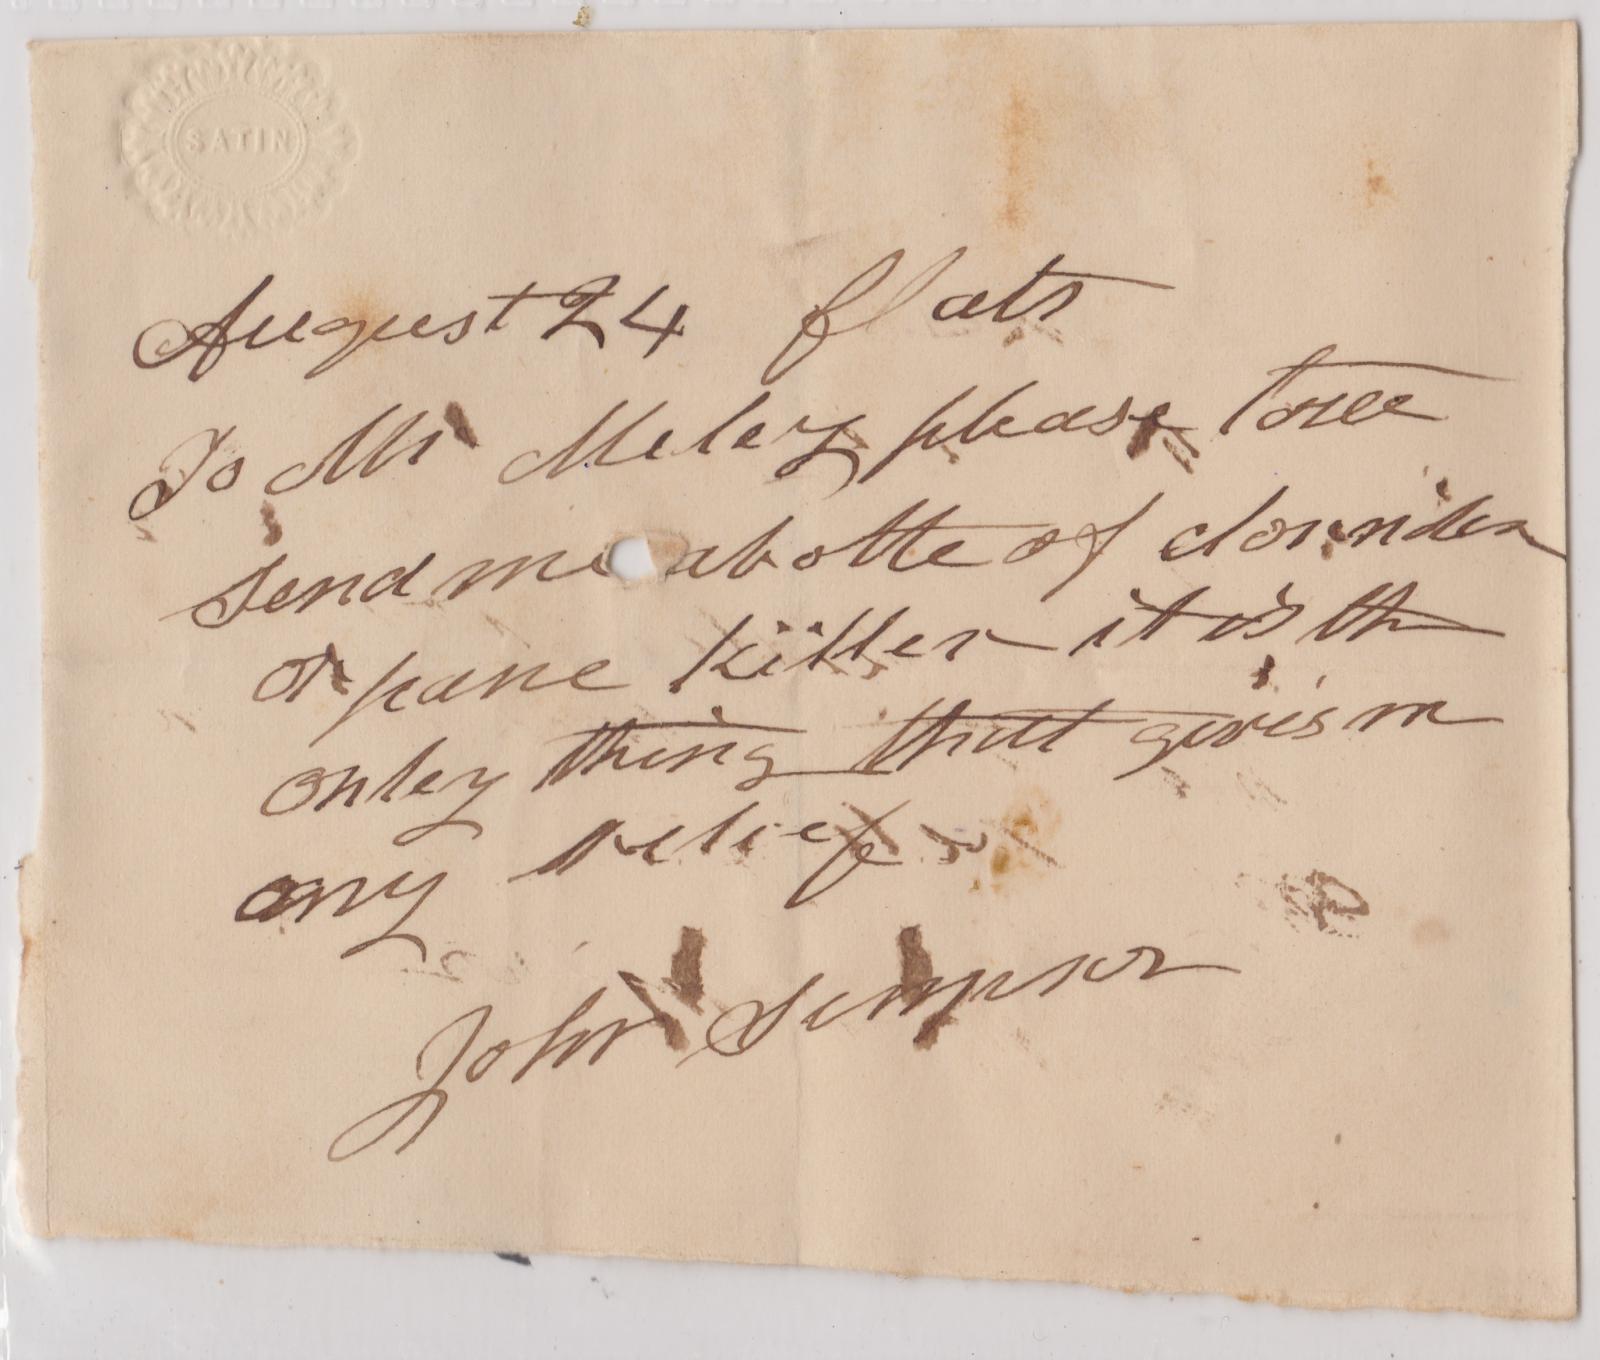 SATIN
August 24 flats
To Mr Meley please to
send me a botle of
or pane killer it is th
onley thing that givis m
any relief
John Simpson